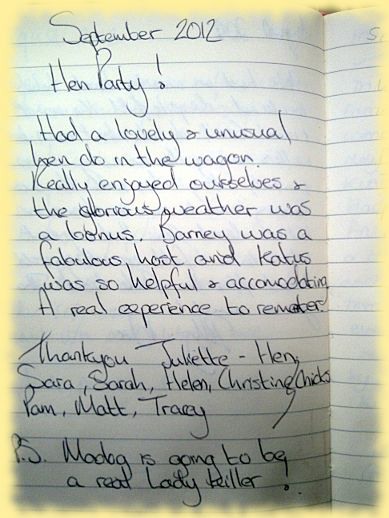 September 2012
Hen Party!
Had a lovely & unusual
hen do in the wagon.
Really enjoyed ourselves &
the glorious weather was
a bonus. Barney was a
fabulous host and Katus
was so helpful & accomodating
A real experience to remeber.
Thankyou Juliette - Hen,
Sara, Sarah, Helen, Christine Chicks
Pam, Matt, Tracey
P.S. Madog is going to be
a real Lady Killer !